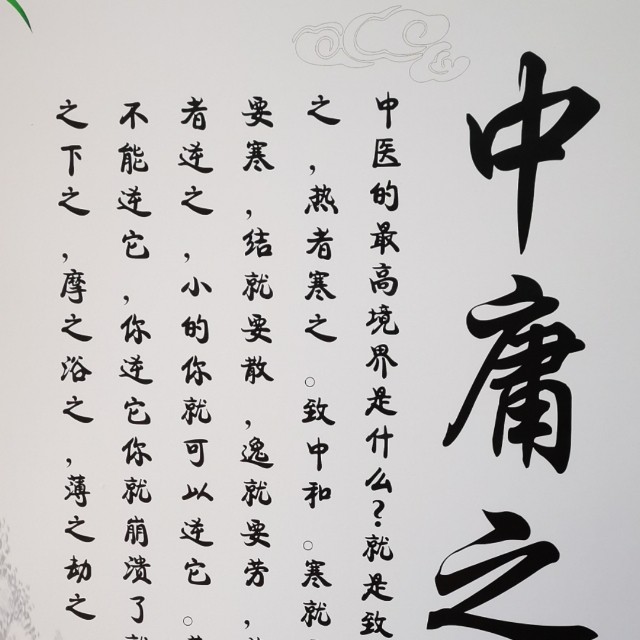 中庸之
中医的最高境界是什么?就是致
之,热者寒之。致中和。寒就
要寒,结就要散,逸就要劳,
者逆之,小的你就可以逆它。
不能逆它,你逆它你就崩溃了
之下之,摩之浴之,薄之劫之